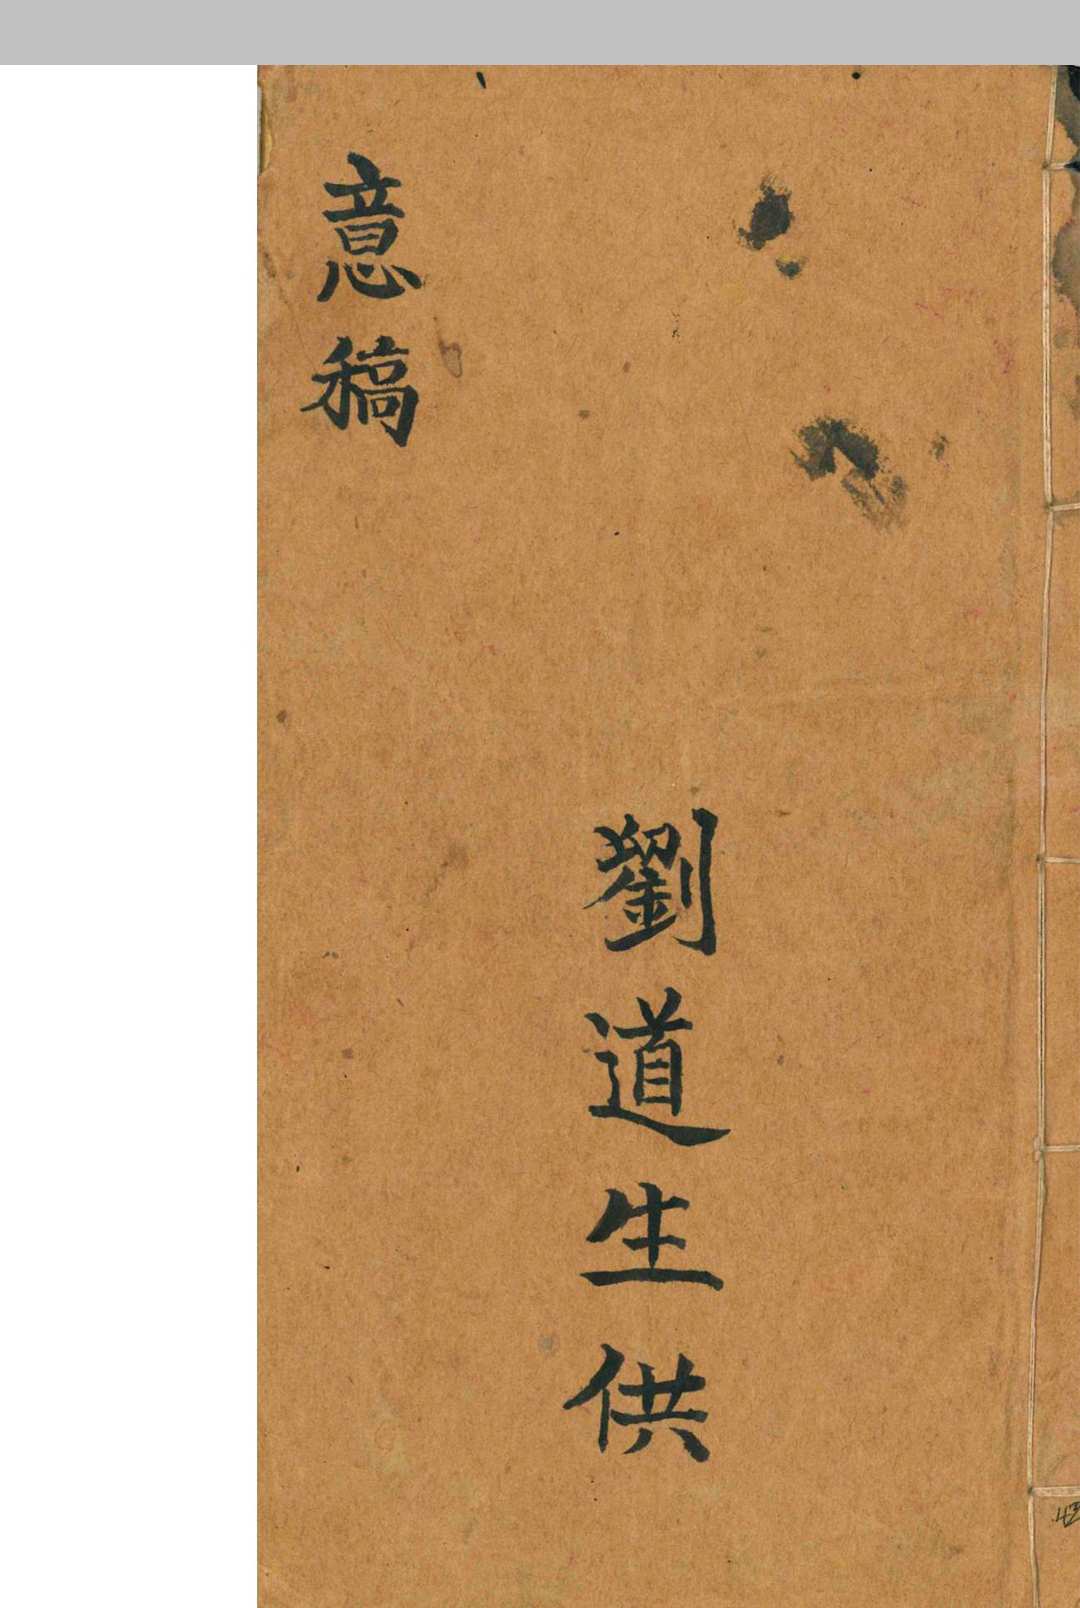 意稿
劉道生供